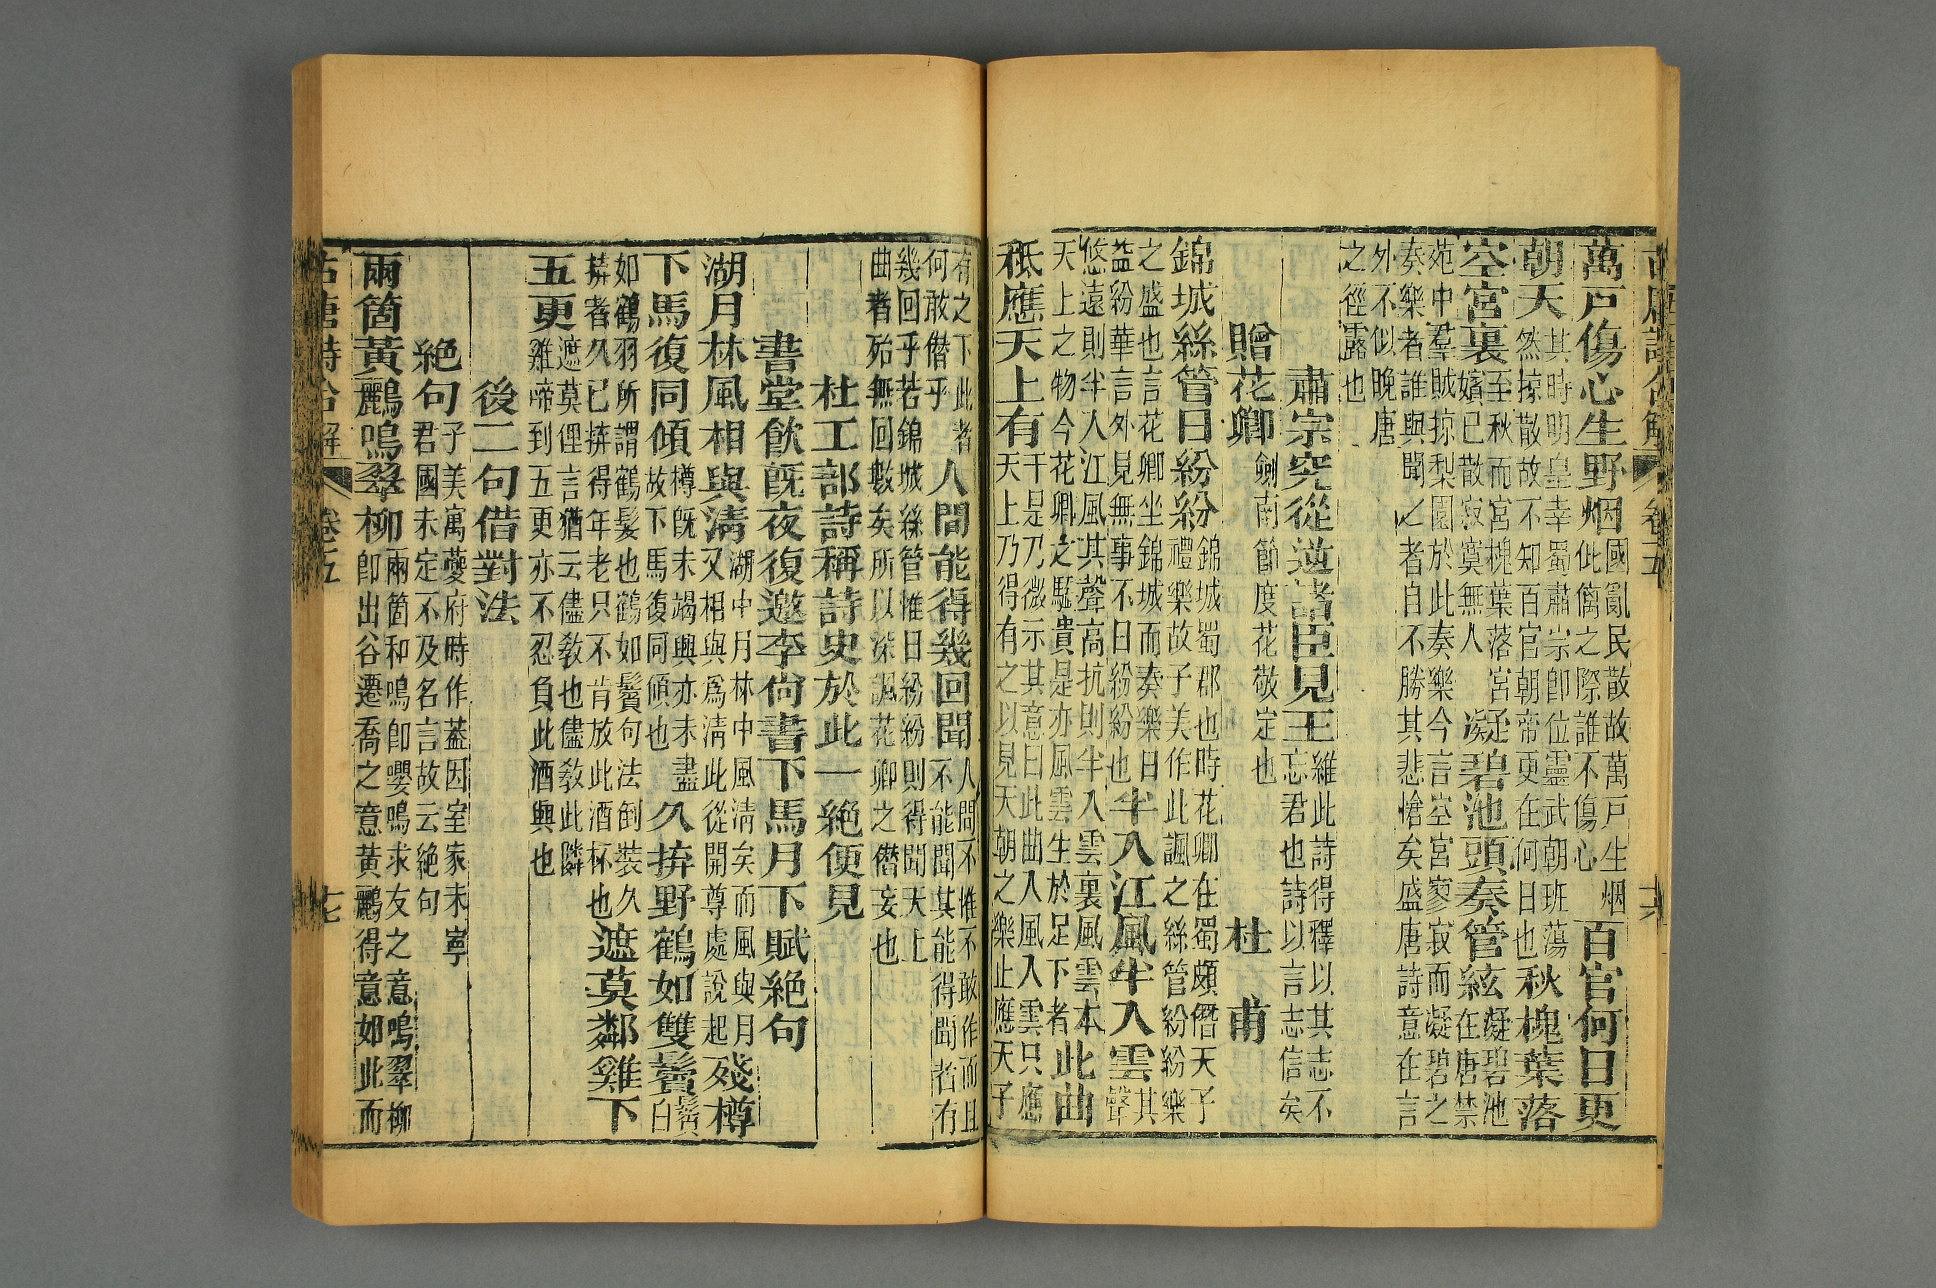 古唐詩合解 卷五 十六
萬戸傷心生野烟
國亂民散故萬戸生烟
此傷之際誰不傷心
百官何日更
朝天
其時明皇幸蜀肅宗卽位靈武朝班蕩
然掠散故不知百官朝帝更在何日也
秋槐葉落
空宮裏
至秋而宮槐葉落宮
嬪已散寂寞無人
凝碧池頭奏管絃
凝碧池
在唐禁
苑中羣賊掠梨園於此奏樂今言空宮寥寂而凝碧之
奏樂者誰與聞之者自不勝其悲愴矣盛唐詩意在言
外不似晚唐
之徑露也
肅宗究從逆諸臣見王
維此詩得釋以其志不
忘君也詩以言志信矣
贈花卿
劍南節度花敬定也
杜甫
錦城絲管日紛紛
錦城蜀郡也時花卿在蜀頗僭天子
禮樂故子美作此諷之絲管紛紛樂
之盛也言花卿坐錦城而奏樂日
益紛華言外見無事不日紛紛也
半入江風半入雲
其
聲
悠遠則半入江風其聲高抗則半入雲裏風雲本
天上之物今花卿之驅貴是亦風雲生於足下者
此曲
秪應天上有
于是乃微示其意曰此曲入風入雲只應
天上乃得有之以見天朝之樂止應天子
有之下此者
何敢僭乎
人間能得幾回聞
人間不惟不敢作而且
不能聞其能得聞者有
幾回乎若錦城絲管惟日紛紛則得聞天上
曲者殆無回數矣所以深諷花卿之僭妄也
杜工部詩稱詩史於此一絕便見
書堂飲旣夜復邀李尙書下馬月下賦絕句
湖月林風相與淸
湖中月林中風淸矣而風與月
又相與爲淸此從開尊處說起
殘樽
下馬復同傾
樽旣未竭興亦未盡
故下馬復同傾也
久拚野鶴如雙鬢
鬢
白
如鶴羽所謂鶴髮也鶴如鬢句法倒裝久
拚者久已拚得年老只不肯放此酒杯也
遮莫鄰雞下
五更
遮莫俚言猶云儘敎也儘敎此隣
雞啼到五更亦不忍負此酒興也
後二句借對法
絕句
子美寓夔府時作蓋因室家未寧
君國未定不及名言故云絕句
兩箇黃鸝鳴翠柳
兩箇和鳴卽嚶鳴求友之意鳴翠柳
卽出谷遷喬之意黃鸝得意如此而
古唐詩合解 卷五 十七